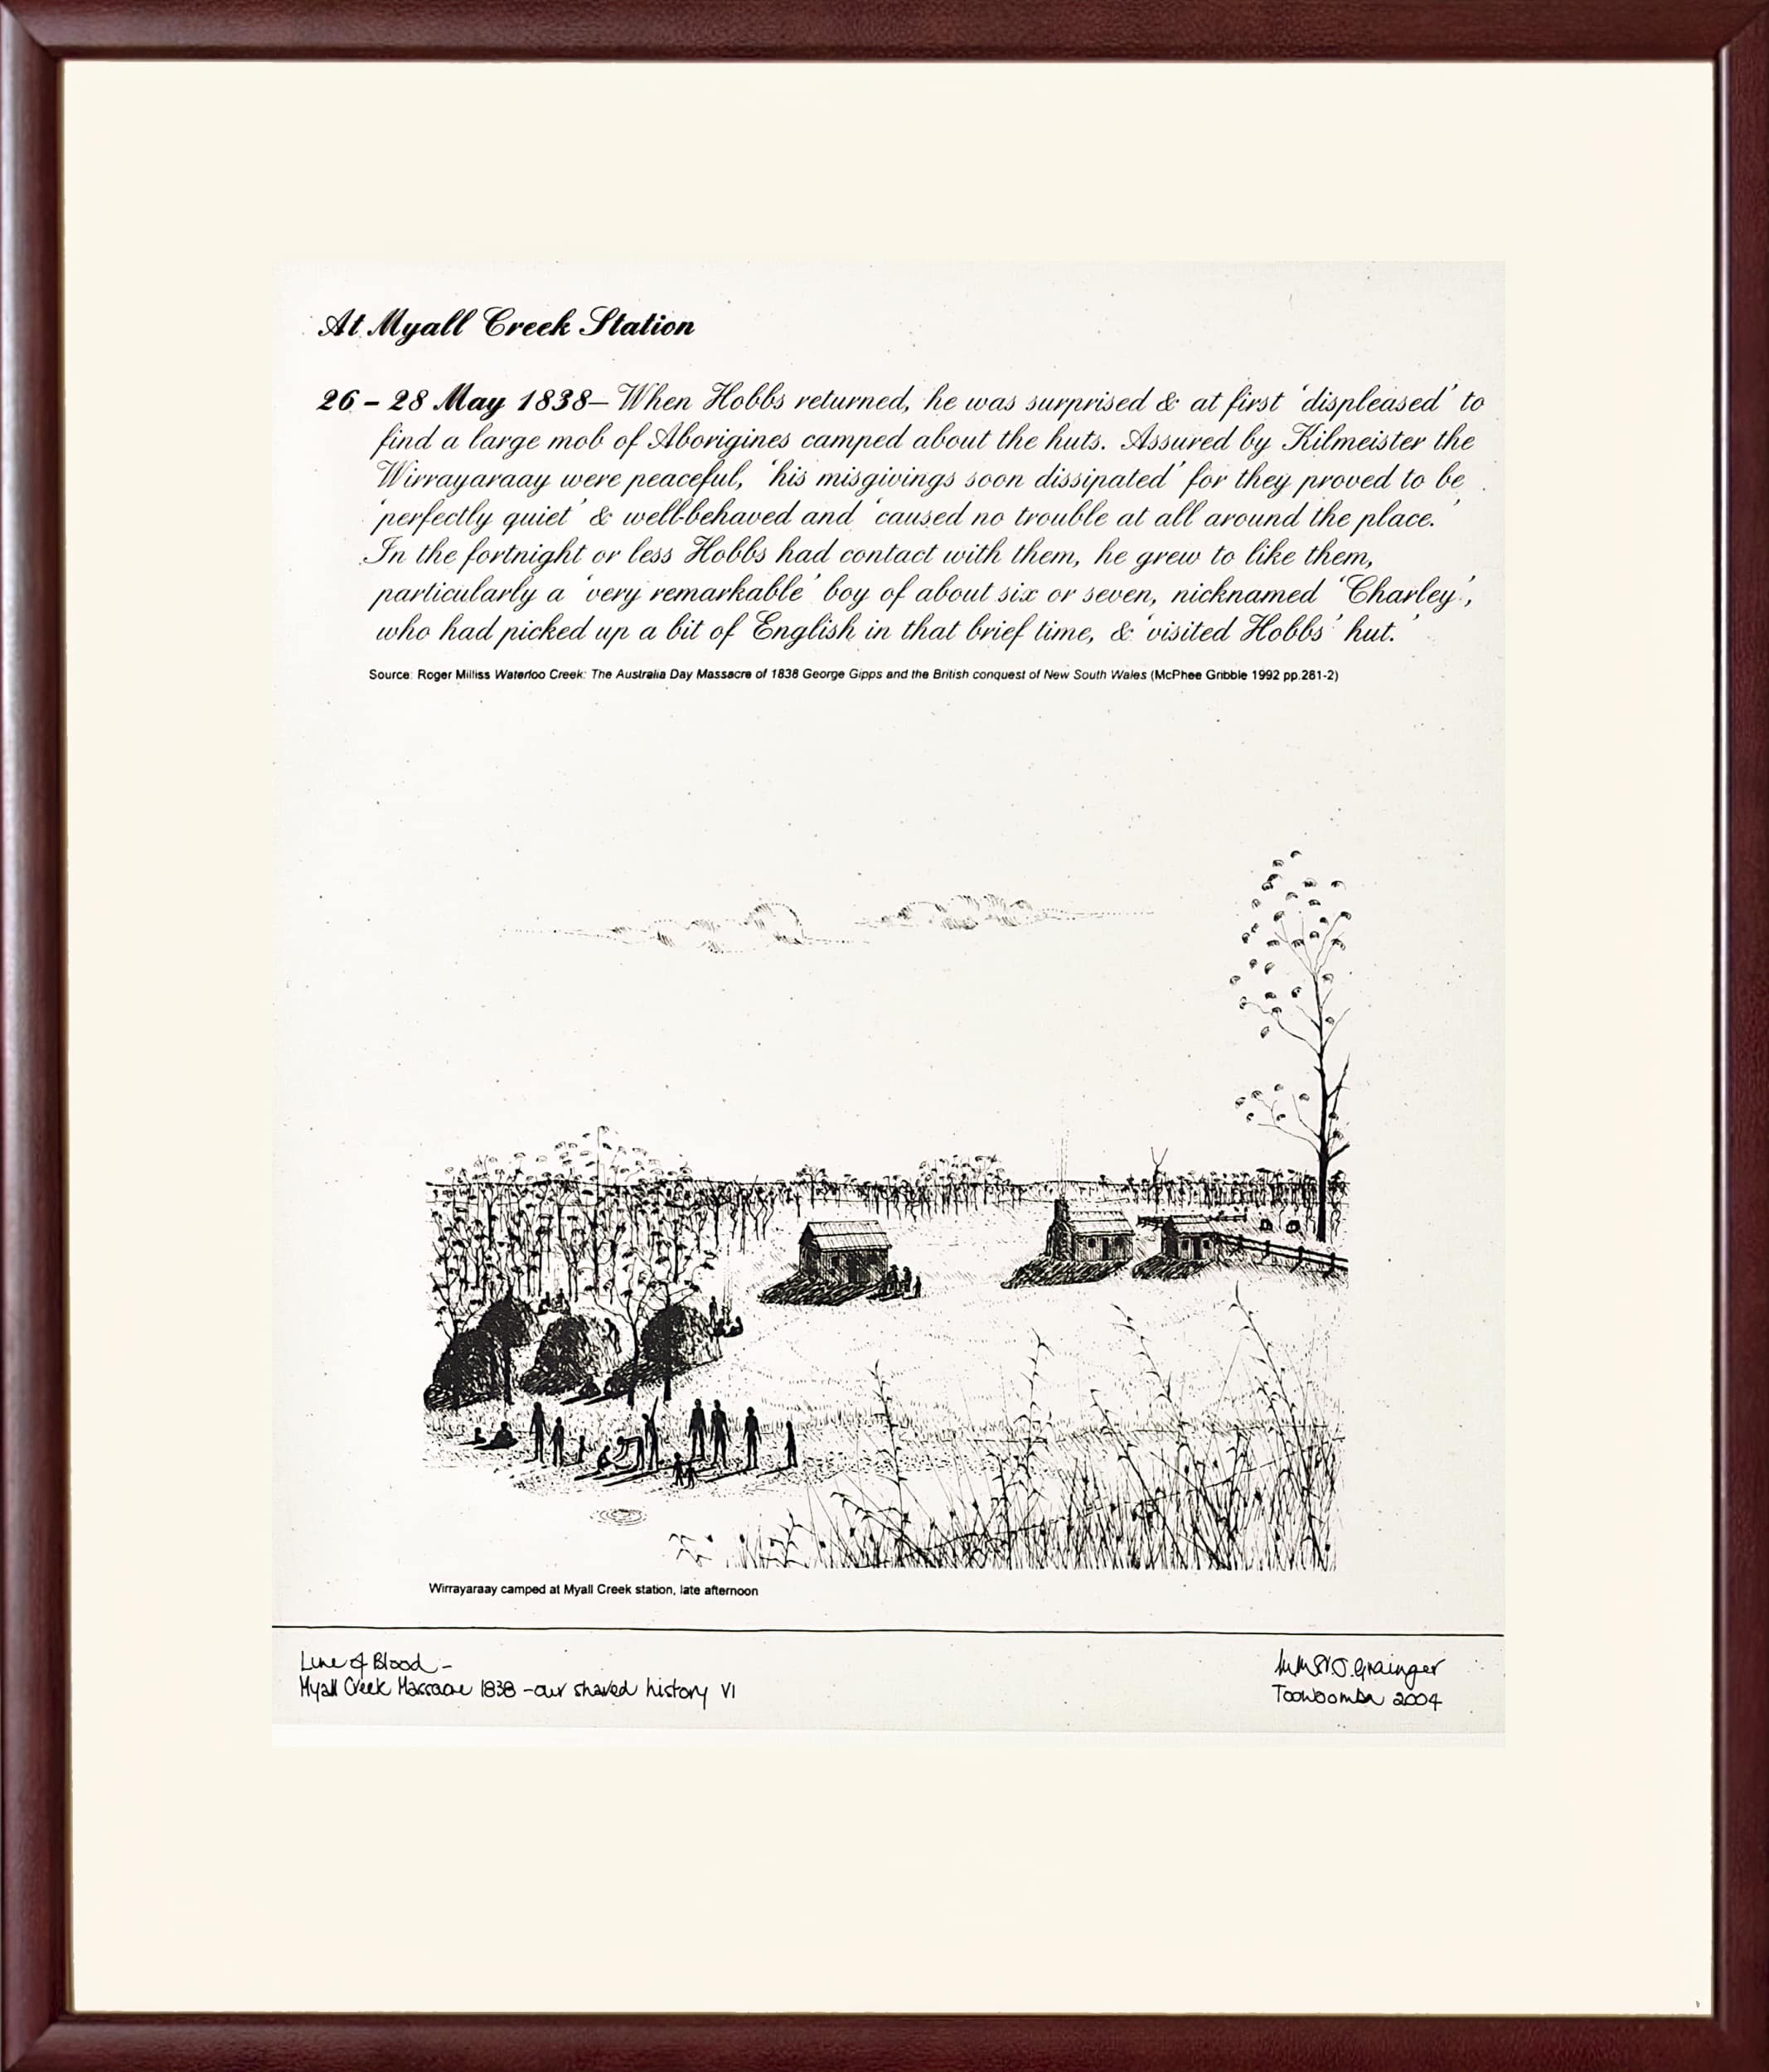 At Myall Creek Station
26 – 28 May 1838– When Hobbs returned, he was surprised & at first ‘displeased’ to
find a large mob of Aborigines camped about the huts. Assured by Kilmeister the
Wirrayaraay were peaceful, ‘his misgivings soon dissipated’ for they proved to be
‘perfectly quiet’ & well-behaved and ‘caused no trouble at all around the place.’
In the fortnight or less Hobbs had contact with them, he grew to like them,
particularly a ‘very remarkable’ boy of about six or seven, nicknamed ‘Charley’,
who had picked up a bit of English in that brief time, & ‘visited Hobbs’ hut.’
Source: Roger Milliss Waterloo Creek: The Australia Day Massacre of 1838 George Gipps and the British conquest of New South Wales (McPhee Gribble 1992 pp.281-2)
Wirrayaraay camped at Myall Creek station, late afternoon
Line of Blood –
Myall Creek Massacre 1838 – our shared history VI
Grainger
Toowoomba 2004